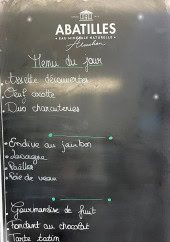 ABATILLES
EAU MINÉRALE NATURELLE
Arcachon
Menu du jour
Assiette découvertes
Oeuf cocotte
Duo charcuteries
Endive au jambon
Lasagne
Paëlla
Foie de veau
Gourmandise de fruit
Fondant au chocolat
Tarte tatin